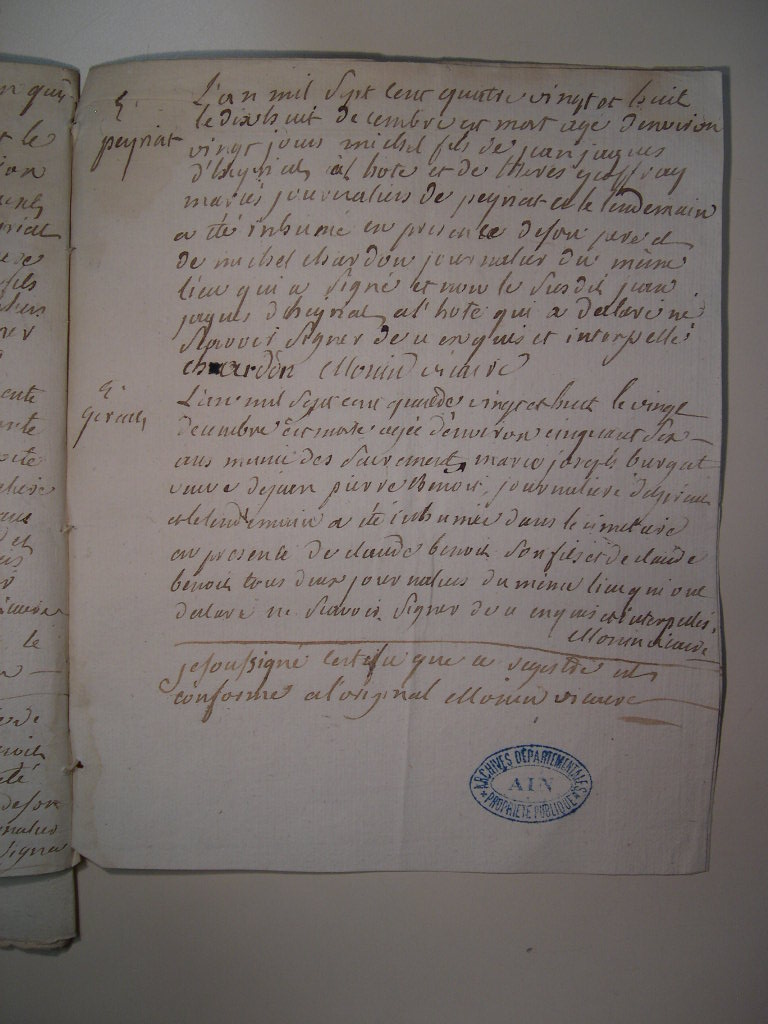 L'an mil Sept Cent quattre vingt et huit
le dix huit decembre est mort agé d'environ
vingt jours michel fils de jean jaques
d'heyriat al hote et de theres geoffray
mariés journaliers de peyriat et le lendemain
a été inhumé en presence de son pere et
de michel chardon journalier du même
lieu qui a signé et non le susdit jean
jaques d'heyriat al'hote qui a delaré ne
sçavoir signer de ce enquis et interpellé
chardon Monin vicaire
peyriat
L'an mil Sept cent quattre vingt et huit le vingt
decembre est morte agée d'environ cinquant six
ans munie des sacrements marie joseph burgat
veuve de jean pierre Benoit, journaliere
et le lendemain a été inhumée dans le cimetiere
en presence de claude benoit son fils et de claude
benoit tous deux journaliers du même lieu qui ont
delaré ne sçavoir signer de ce enquis et interpellés
Monin vicaire
je soussigné certifie que ce registre est
conforme a l'original Monin vicaire
ARCHIVES DÉPARTEMENTALES
AIN
PROPRIÉTÉ PUBLIQUE